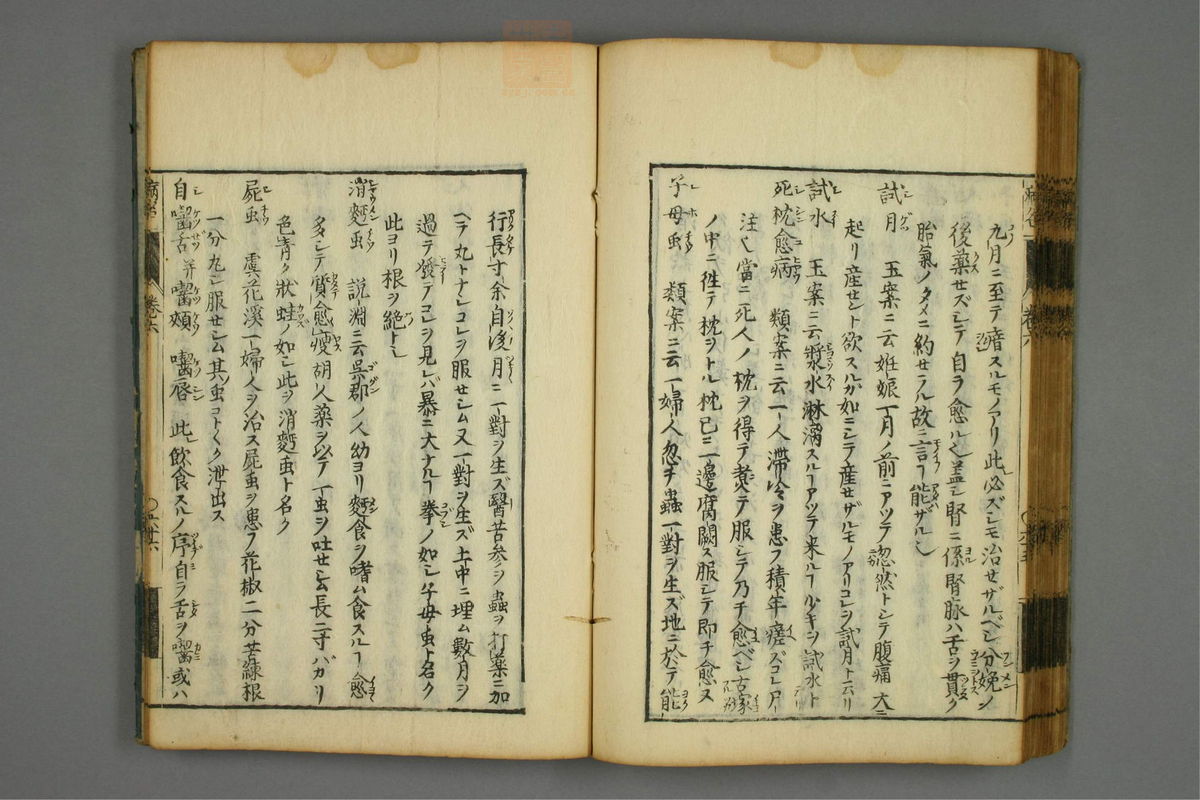 九月ニ至テ瘖スルモノアリ此必ズシモ治セザルベシ分娩ノ
後薬セズシテ自ラ愈ル也蓋シ腎ニ係腎脉ハ舌ヲ貫ク
胎氣ノタメニ約セラル故ニ言フ能ザル也
試月 玉案ニ云姙娠一月ノ前ニアツテ忽然トシテ腹痛大ニ
起リ産セント欲スルガ如ニシテ産セザルモノアリコレヲ試月ト云リ
試水 玉案ニ云漿水淋漓スルヿアツテ来ルヿ少キヲ試水ト
死枕愈病 類案ニ云一人滞冷ヲ患フ積年瘥ズコレ尸
注也當ニ死人ノ枕ヲ得テ煮テ服シテ乃チ愈ベシ古冢
ノ中ニ徃テ枕ヲトル枕已ニ一邉腐闕ス服シテ即チ愈ヌ
子母虫 類案ニ云一婦人忽チ蟲一對ヲ生ズ地ニ於テ能
行長寸余自後月ニ一對ヲ生ズ醫苦参ヲ蟲ヲ打薬ニ加
ヘテ丸トナシコレヲ服セシム又一對ヲ生ズ土中ニ埋ム數月ヲ
過テ發テコレヲ見レバ暴ニ大ナルヿ拳ノ如シ子母虫ト名ク
此ヨリ根ヲ絶トシ
消麵虫 説淵ニ云呉郡ノ人幼ヨリ麵食ヲ嗜ム食スルヿ愈
多シテ質愈瘦胡人薬ヲ以テ一虫ヲ吐セシム長二寸バカリ
色青ク狀蛙ノ如シ此ヲ消麵虫ト名ク
屍虫 虞花溪一婦人ヲ治ス屍虫ヲ患フ花椒二分苦練根
一分丸シ服セシム其虫コトゝク泄出ス
自嚙舌并嚙頰 嚙唇 此飲食スルノ序自ラ舌ヲ嚙或ハ
卷六